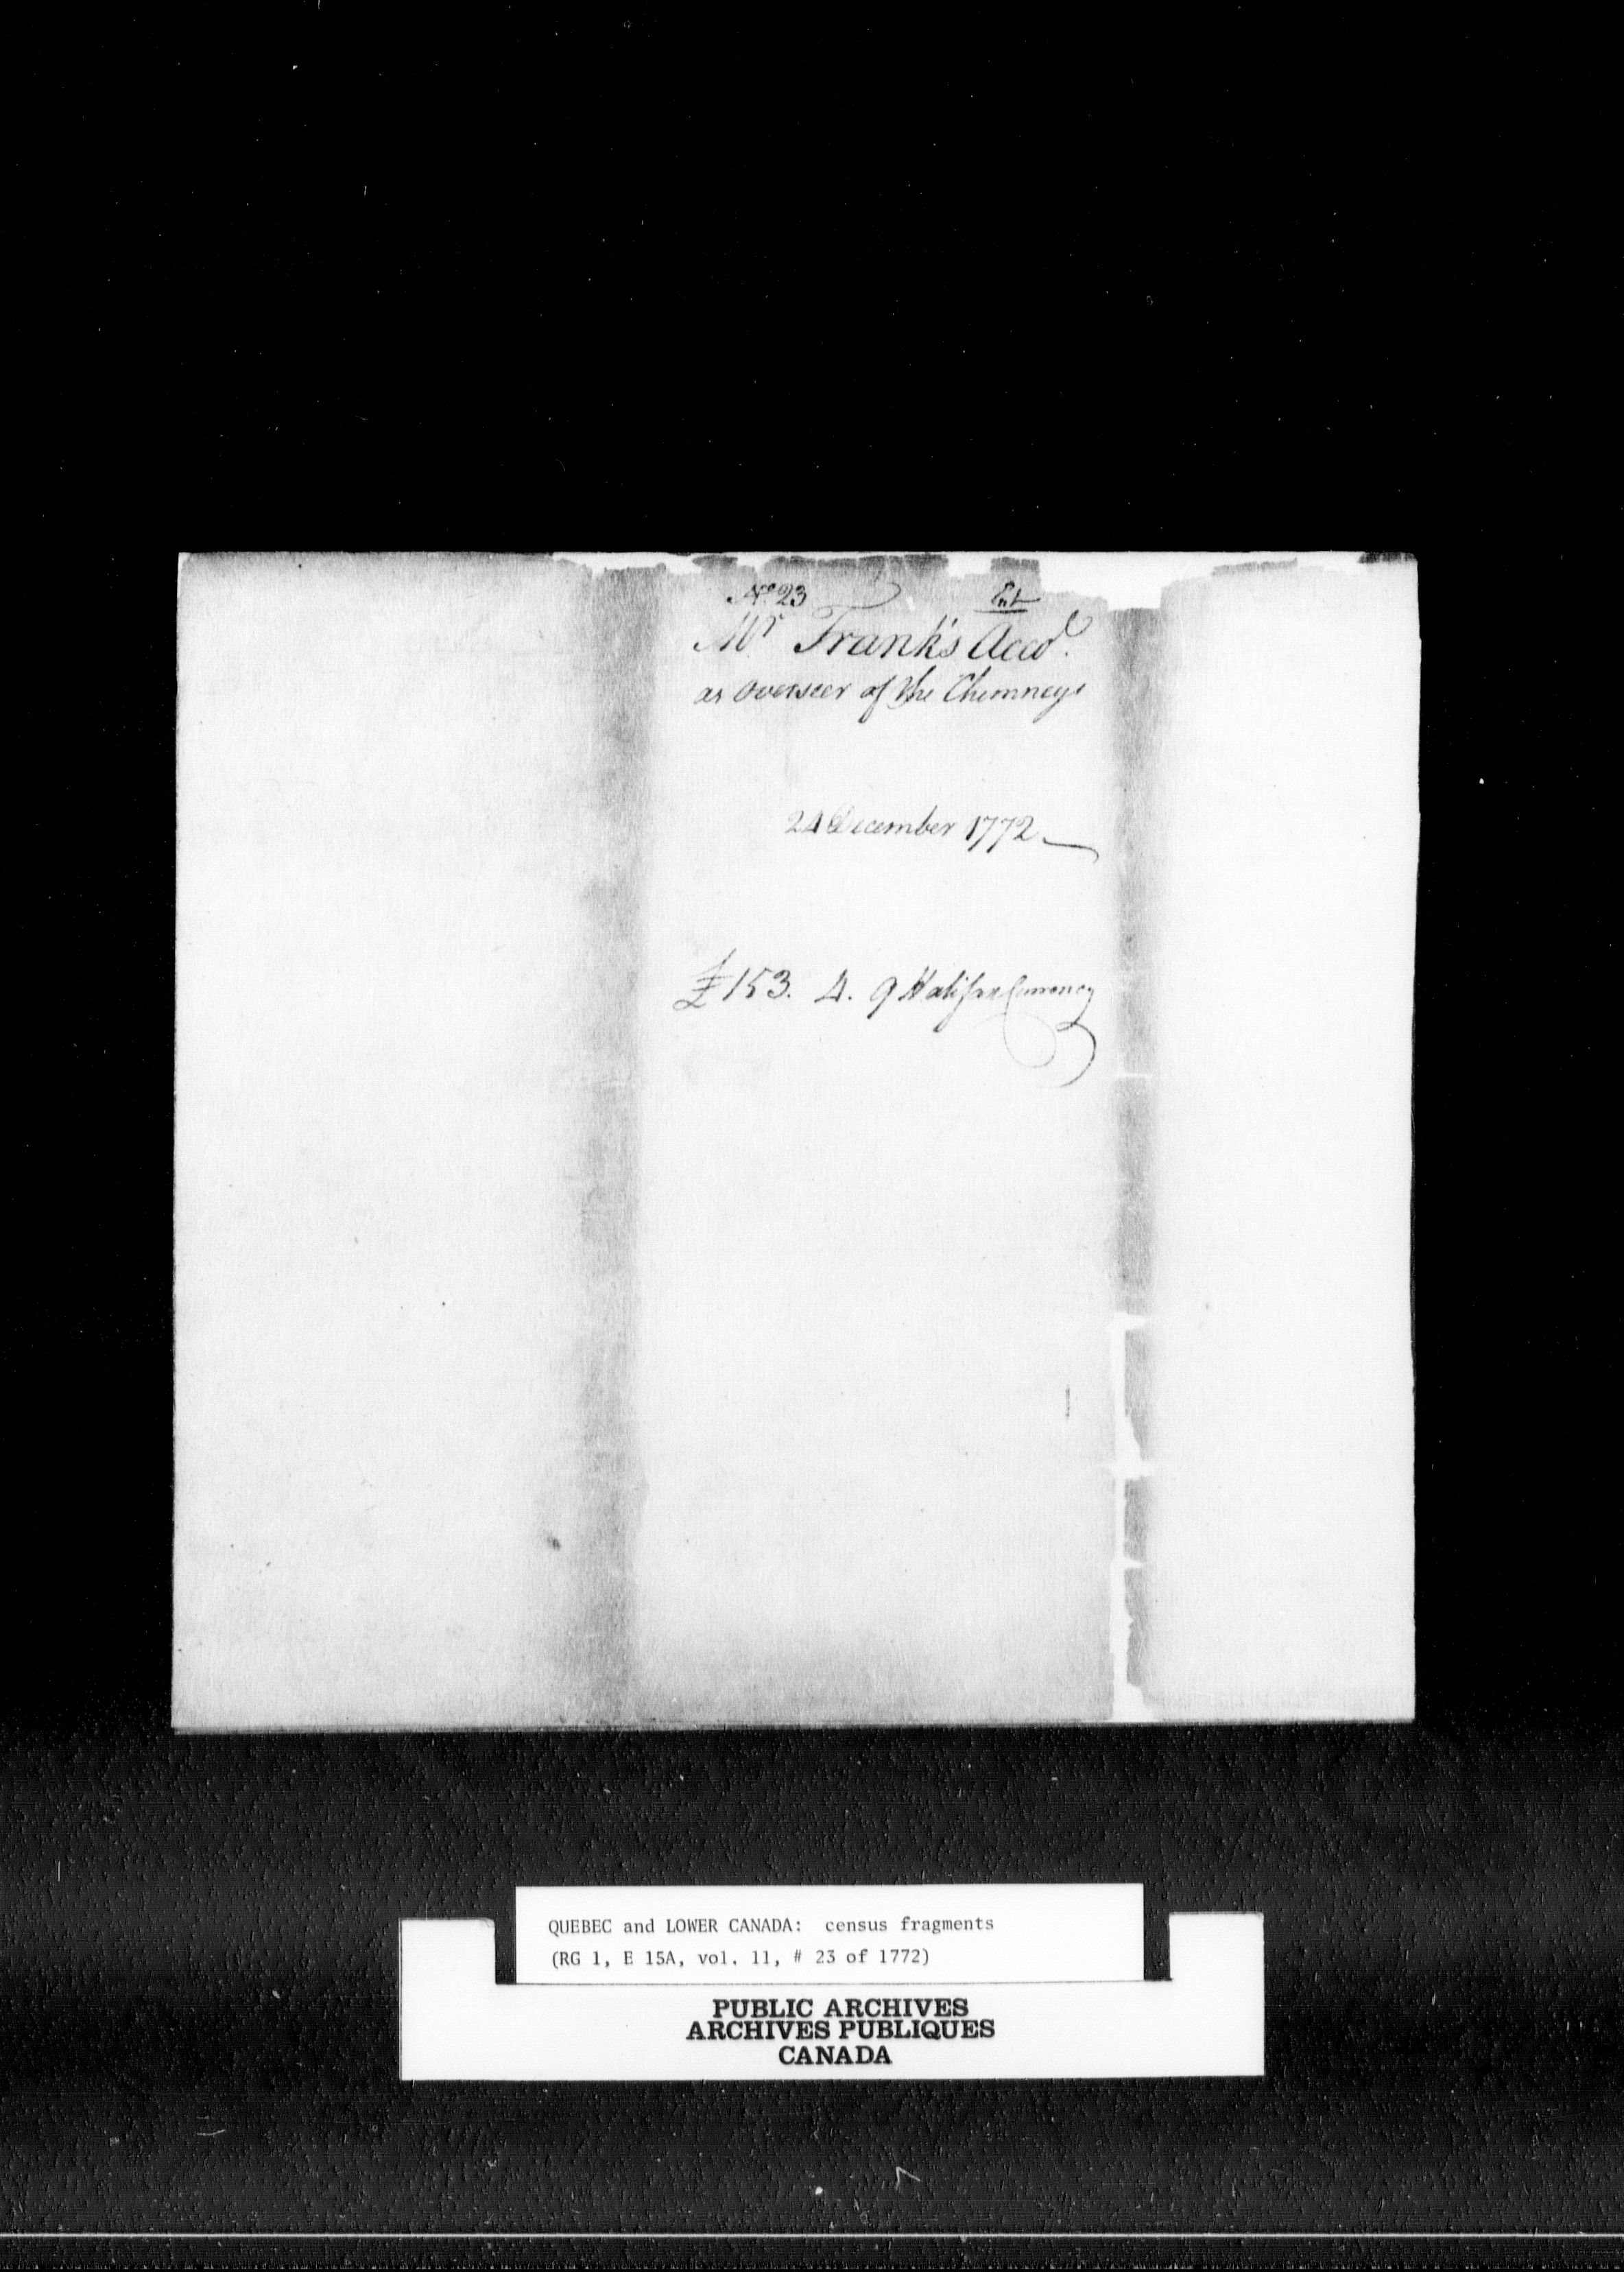 No. 23 Ent
Mr Frank's Accot.
as Overseer of the Chimneys
24 December 1772
£153. 4. 9 Halifax Currency
QUEBEC and LOWER CANADA: census fragments
(RG 1, E 15A, vol. 11, # 23 of 1772)
PUBLIC ARCHIVES
ARCHIVES PUBLIQUES
CANADA